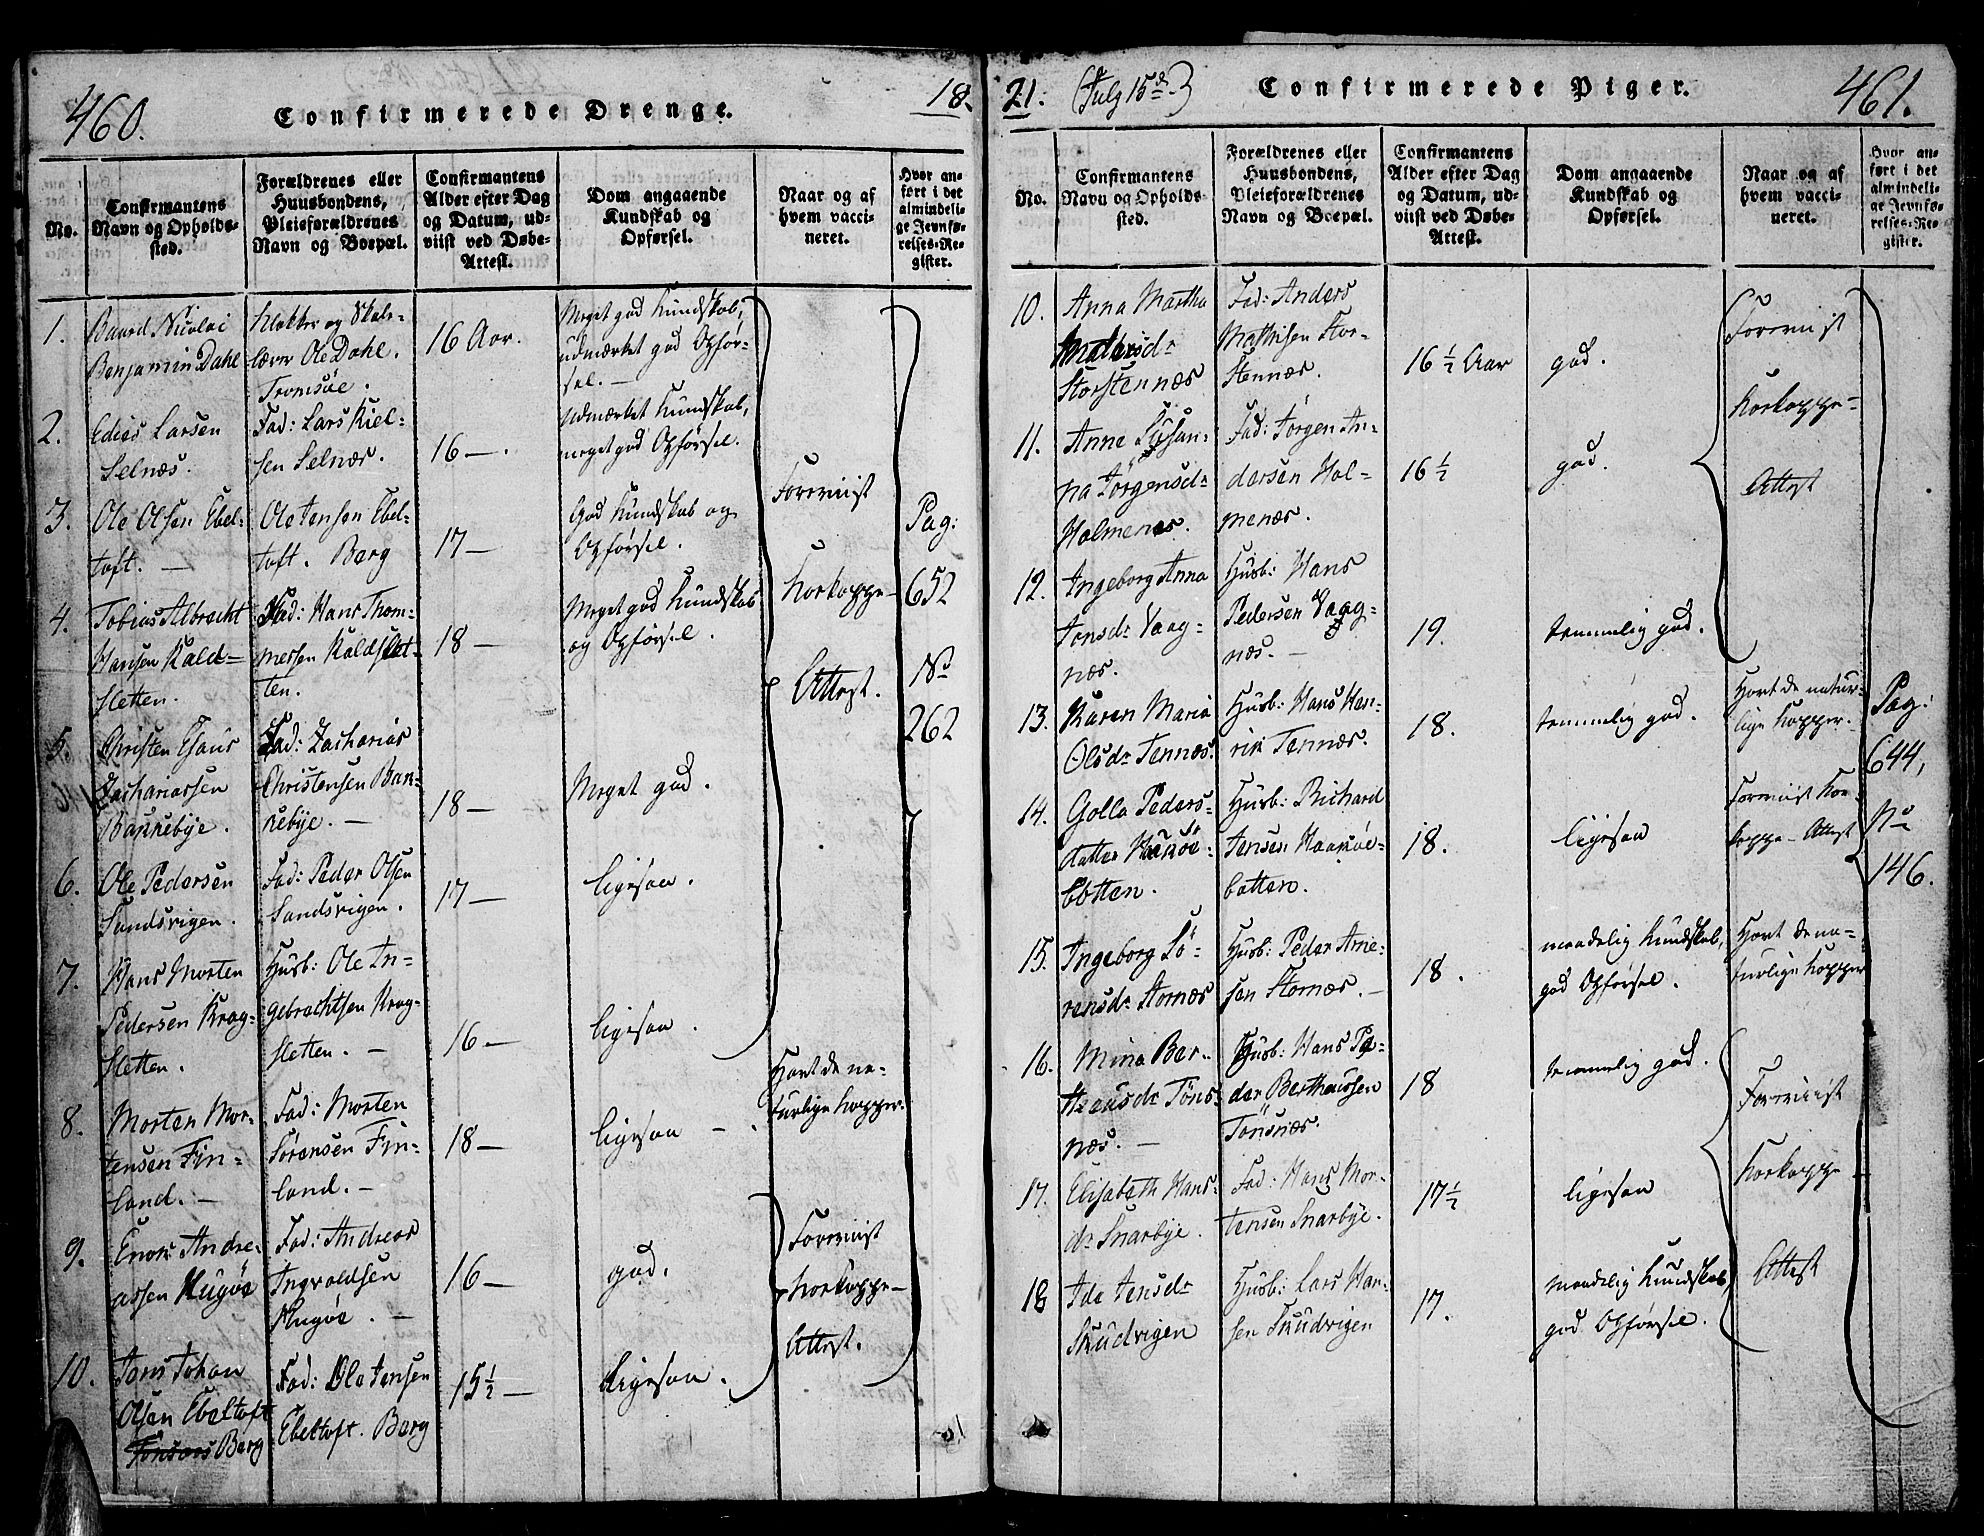 460.
Confirmerede Drenge.
18
No.
Confirmantens
Navn og Opholds-
sted.
Forældrenes eller
Huusbondens,
Pleieforældrenes
Navn og Boepæl.
Confirmantens
Alder efter Dag
og Datum, ud-
viist ved Døbe-
Attest.
Dom angaaende
Kundskab og
Opførsel.
Naar og af
hvem vacci-
neret.
Hvor an-
ført i det
almindeli-
ge Jevnfø-
relses-Re-
gister.
1.
Baard Nicolai
Benjamin Dahl
Klokker og Skole-
lærer Ole Dahl.
Tromsöe.
16 Aar.
Meget god Kundskab,
udmærket god Opför-
sel. —
2.
Edias Larsen
Selnæs.
Fad: Lars Kiel-
sen Selnæs.
16 —.
Udmærket Kundskab,
meget god Opförsel.
3.
Ole Olsen Ebel-
toft. —
Ole Jensen Ebel-
toft. Berg
17 —
God Kundskab og
Opförsel.
4.
Tobias Albrecht
Hansen Kald-
sletten.
Fad: Hans Thom-
mesen Kaldslet-
ten.
18 —
Meget god Kundskab
og Opförsel.
5.
Christen Esaus
Zachariassen
Bakkebye.
Fad: Zacharias
Christensen Bak-
kebye. —
18 —
Meget god.
6.
Ole Pedersen
Sandsvigen.
Fad: Peder Olsen
Sandsvigen.
17 —
ligesaa.
7.
Hans Morten
Pedersen Krag-
sletten.
Husb: Ole In-
gebrachtsen Krag-
sletten. —
16 —
ligesaa.
Foreviist
Kokoppe-
Attest.
Pag:
652
No
262
8.
Morten Mor-
tensen Fin-
land. —
Fad: Morten
Sörensen Fin-
land. —
18 —
ligesaa —.
Havt de na-
turlige Kopper.
9.
Enok Andre-
assen Kugöe
Fad: Andreas
Ingvaldsen
Kugöe. —
16 —
god.
10.
Jens Johan
Olsen Ebeltoft
Berg
Fad: Ole Jensen
Ebeltoft. Berg
15 1/2 —
ligesaa.
Foreviist
Kokoppe-
Attest.
21.
(July 15de)
Confirmerede Piger.
461.
No.
Confirmantens
Navn og Opholds-
sted.
Forældrenes eller
Huusbondens,
Pleieforældrenes
Navn og Boepæl.
Confirmantens
Alder efter Dag
og Datum, ud-
viist ved Døbe-
Attest.
Dom angaaende
Kundskab og
Opførsel.
Naar og af
hvem vacci-
neret.
Hvor an-
ført i det
almindeli-
ge Jevnfø-
relses-Re-
gister.
10.
Anna Martha
Storstennæs
Fad: Anders
Mathisen Stor-
stennæs.
16 1/2 Aar
god.
11.
Anne Susan-
na Jörgensdr
Holmenæs.
Fad: Jörgen An-
dersen Hol-
menæs.
16 1/2
god.
12.
Ingeborg Anna
Jonsdr Vaag-
næs.
Husb: Hans
Pedersen Vaag-
næs. —
19.
temmelig god.
Foreviist
Kokoppe-
Attest
13.
Karen Maria
Olsdr Tennæs.
Husb: Hans Hen-
rik Tennæs.
18.
temmelig god.
Havt de natur-
lige Kopper.
14.
Golla Peders-
datter Haaköe-
botten.
Husb: Richard
Jensen Haaköe-
botten.
18.
ligesaa
Foreviist Ko-
koppe-Attest
Pag:
644,
No
146.
15.
Ingeborg Sö-
rensdr Stornæs
Husb: Peder Arne-
sen Stornæs. —
18.
maadelig Kundskab,
god Opförsel.
Havt de na-
turlige Kopper
16.
Mina Ber-
theusdr Töns-
næs. —
Husb: Hans Pe-
der Bertheussen
Tönsnæs.
18
temmelig god.
17.
Elisabeth Hans-
dr Snarbye.
Fad: Hans Mor-
tensen Snarbye.
17 1/2
ligesaa
18
Ida Jensdr
Skudvigen
Husb: Lars Han-
sen Skudvigen
17.
maadelig Kundskab,
god Opförsel.
Foreviist
Kokoppe-
Attest